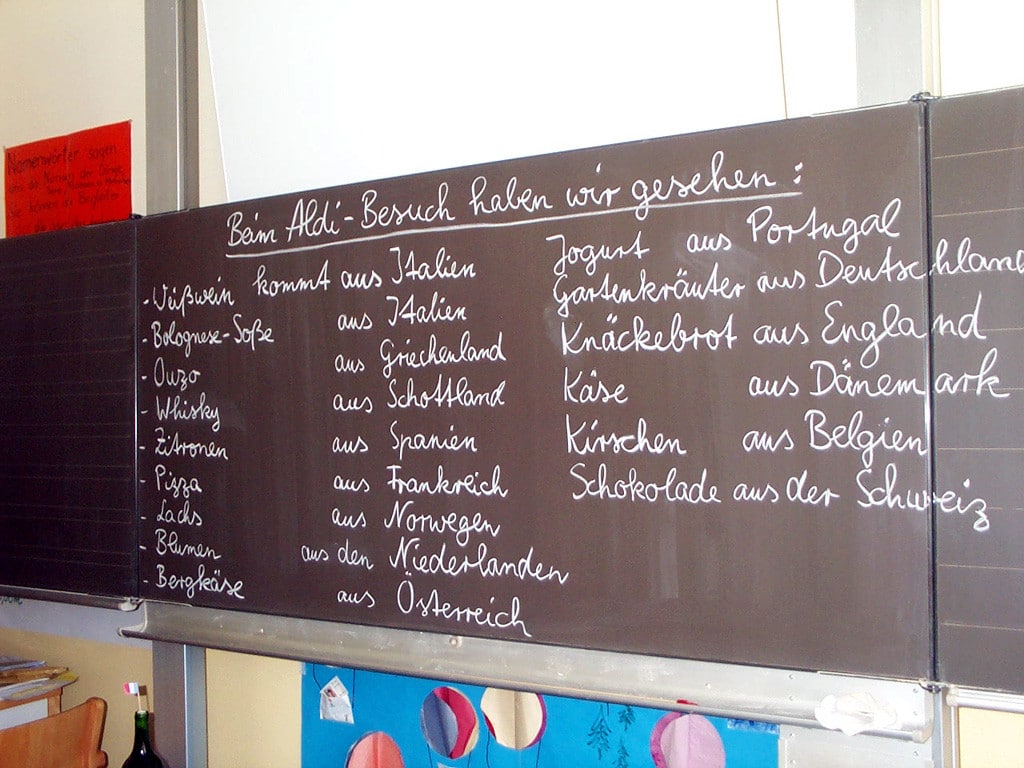 Namenwörter sagen
Beim Aldi-Besuch haben wir gesehen:
- Weißwein kommt aus Italien
- Bolognese-Soße aus Italien
- Ouzo aus Griechenland
- Whisky aus Schottland
- Zitronen aus Spanien
- Pizza aus Frankreich
- Lachs aus Norwegen
- Blumen aus den Niederlanden
- Bergkäse aus Österreich
Jogurt aus Portugal
Gartenkräuter aus Deutschland
Knäckebrot aus England
Käse aus Dänemark
Kirschen aus Belgien
Schokolade aus der Schweiz